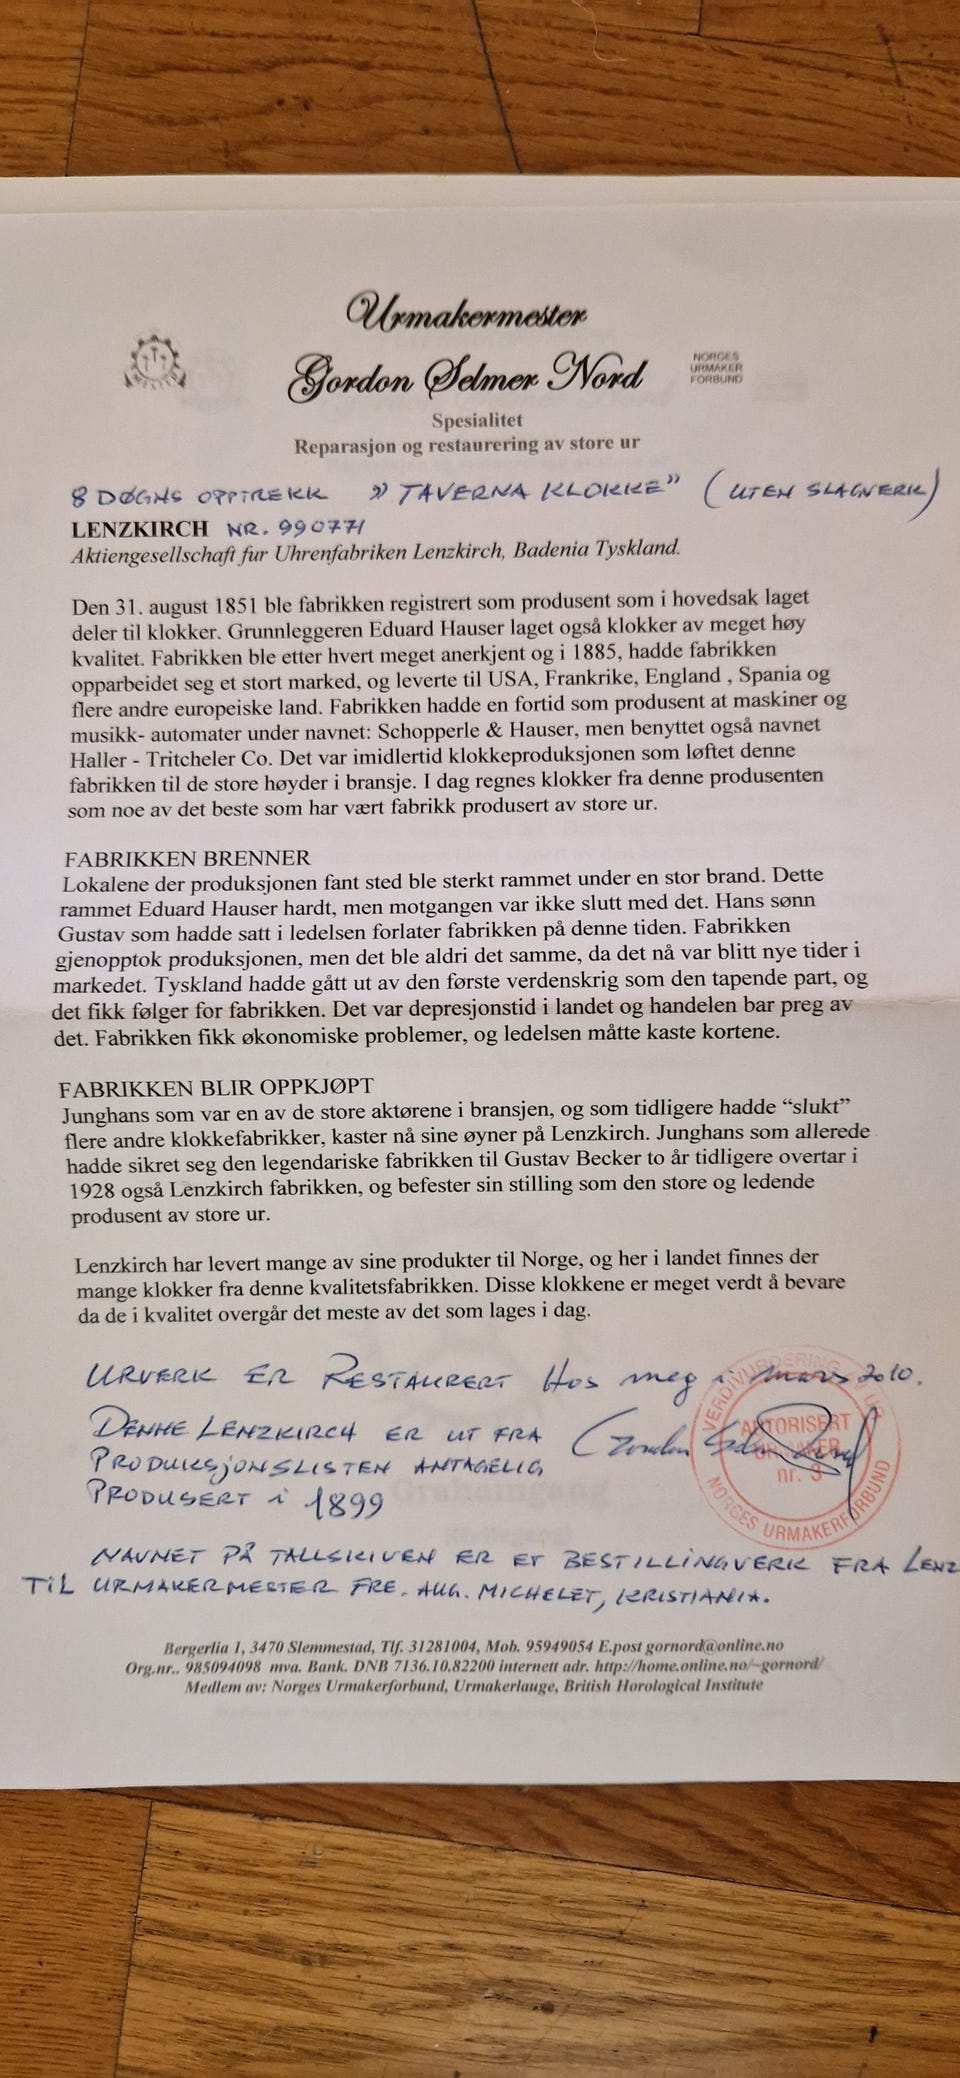 Urmakermester
Gordon Selmer Nord
NORGES
URMAKER
FORBUND
Spesialitet
Reparasjon og restaurering av store ur
8 DØGNS OPPTREKK " TAVERNA KLOKKE" (UTEN SLAGVERK)
LENZKIRCH NR. 990771
Aktiengesellschaft fur Uhrenfabriken Lenzkirch, Badenia Tyskland.
Den 31. august 1851 ble fabrikken registrert som produsent som i hovedsak laget
deler til klokker. Grunnleggeren Eduard Hauser laget også klokker av meget høy
kvalitet. Fabrikken ble etter hvert meget anerkjent og i 1885, hadde fabrikken
opparbeidet seg et stort marked, og leverte til USA, Frankrike, England , Spania og
flere andre europeiske land. Fabrikken hadde en fortid som produsent at maskiner og
musikk- automater under navnet: Schopperle & Hauser, men benyttet også navnet
Haller - Tritcheler Co. Det var imidlertid klokkeproduksjonen som løftet denne
fabrikken til de store høyder i bransje. I dag regnes klokker fra denne produsenten
som noe av det beste som har vært fabrikk produsert av store ur.
FABRIKKEN BRENNER
Lokalene der produksjonen fant sted ble sterkt rammet under en stor brand. Dette
rammet Eduard Hauser hardt, men motgangen var ikke slutt med det. Hans sønn
Gustav som hadde satt i ledelsen forlater fabrikken på denne tiden. Fabrikken
gjenopptok produksjonen, men det ble aldri det samme, da det nå var blitt nye tider i
markedet. Tyskland hadde gått ut av den første verdenskrig som den tapende part, og
det fikk følger for fabrikken. Det var depresjonstid i landet og handelen bar preg av
det. Fabrikken fikk økonomiske problemer, og ledelsen måtte kaste kortene.
FABRIKKEN BLIR OPPKJØPT
Junghans som var en av de store aktørene i bransjen, og som tidligere hadde “slukt”
flere andre klokkefabrikker, kaster nå sine øyner på Lenzkirch. Junghans som allerede
hadde sikret seg den legendariske fabrikken til Gustav Becker to år tidligere overtar i
1928 også Lenzkirch fabrikken, og befester sin stilling som den store og ledende
produsent av store ur.
Lenzkirch har levert mange av sine produkter til Norge, og her i landet finnes der
mange klokker fra denne kvalitetsfabrikken. Disse klokkene er meget verdt å bevare
da de i kvalitet overgår det meste av det som lages i dag.
URVERK ER RESTAURERT HOS meg i mars 2010.
DENNE LENZKIRCH ER UT FRA
PRODUKSJONSLISTEN ANTAGELIG
PRODUSERT i 1899
VERDIVURDERING AV UR
AUTORISERT
URMAKER
nr. 3
NORGES URMAKERFORBUND
NAVNET PÅ TALLSKIVEN ER ET BESTILLINGVERK FRA LENZ
TIL URMAKERMESTER FRE. AUG. MICHELET, KRISTIANIA.
Bergerlia 1, 3470 Slemmestad, Tlf. 31281004, Mob. 95949054 E.post gornord@online.no
Org.nr.. 985094098 mva. Bank. DNB 7136.10.82200 internett adr. http://home.online.no/~gornord/
Medlem av: Norges Urmakerforbund, Urmakerlauge, British Horological Institute